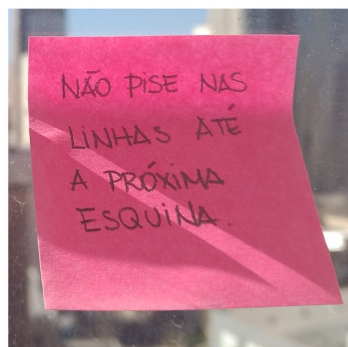 NÃO PISE NAS
LINHAS ATÉ
A PRÓXIMA
ESQUINA.